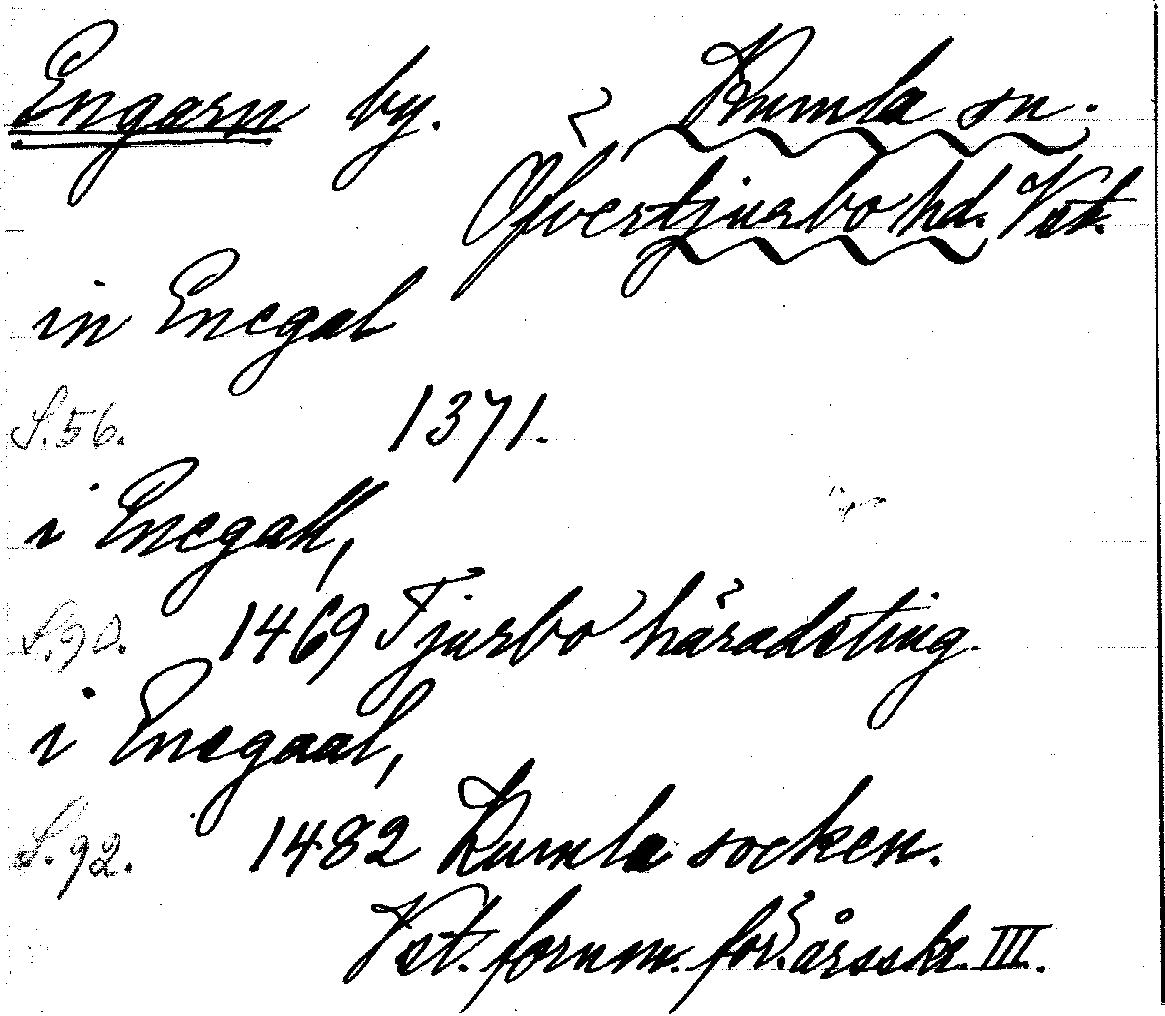 Engarn by. Kumla sn.
Öfvertjurbo hd. Vst.
in Enegal
S.56. 1371.
i Enegall,
S.90. 1469 Tjurbo häradsting.
i Enegaal,
S.92. 1482 Kumla socken.
Vst. fornm. för. årsskr. III.